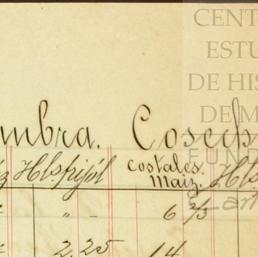 CENT
ESTU
DE HIS
DE M
FUND
art
mbra. Cosech
z Hbs frijól costales. Maiz. Hbs.
" - 6 2/3
2,25 14